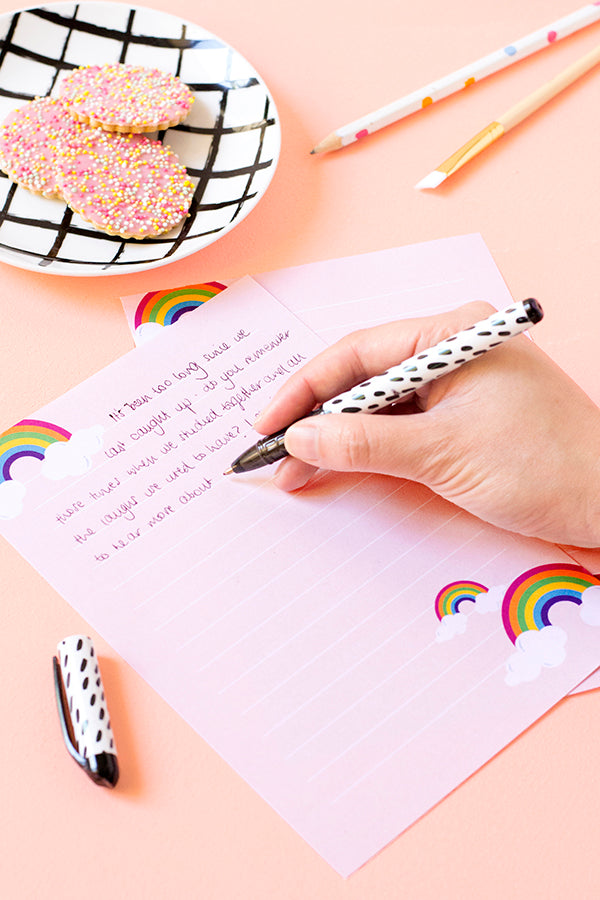 It's been too long since we
last caught up. do you remember
those times when we studied together and all
the laughs we used to have?
to hear more about